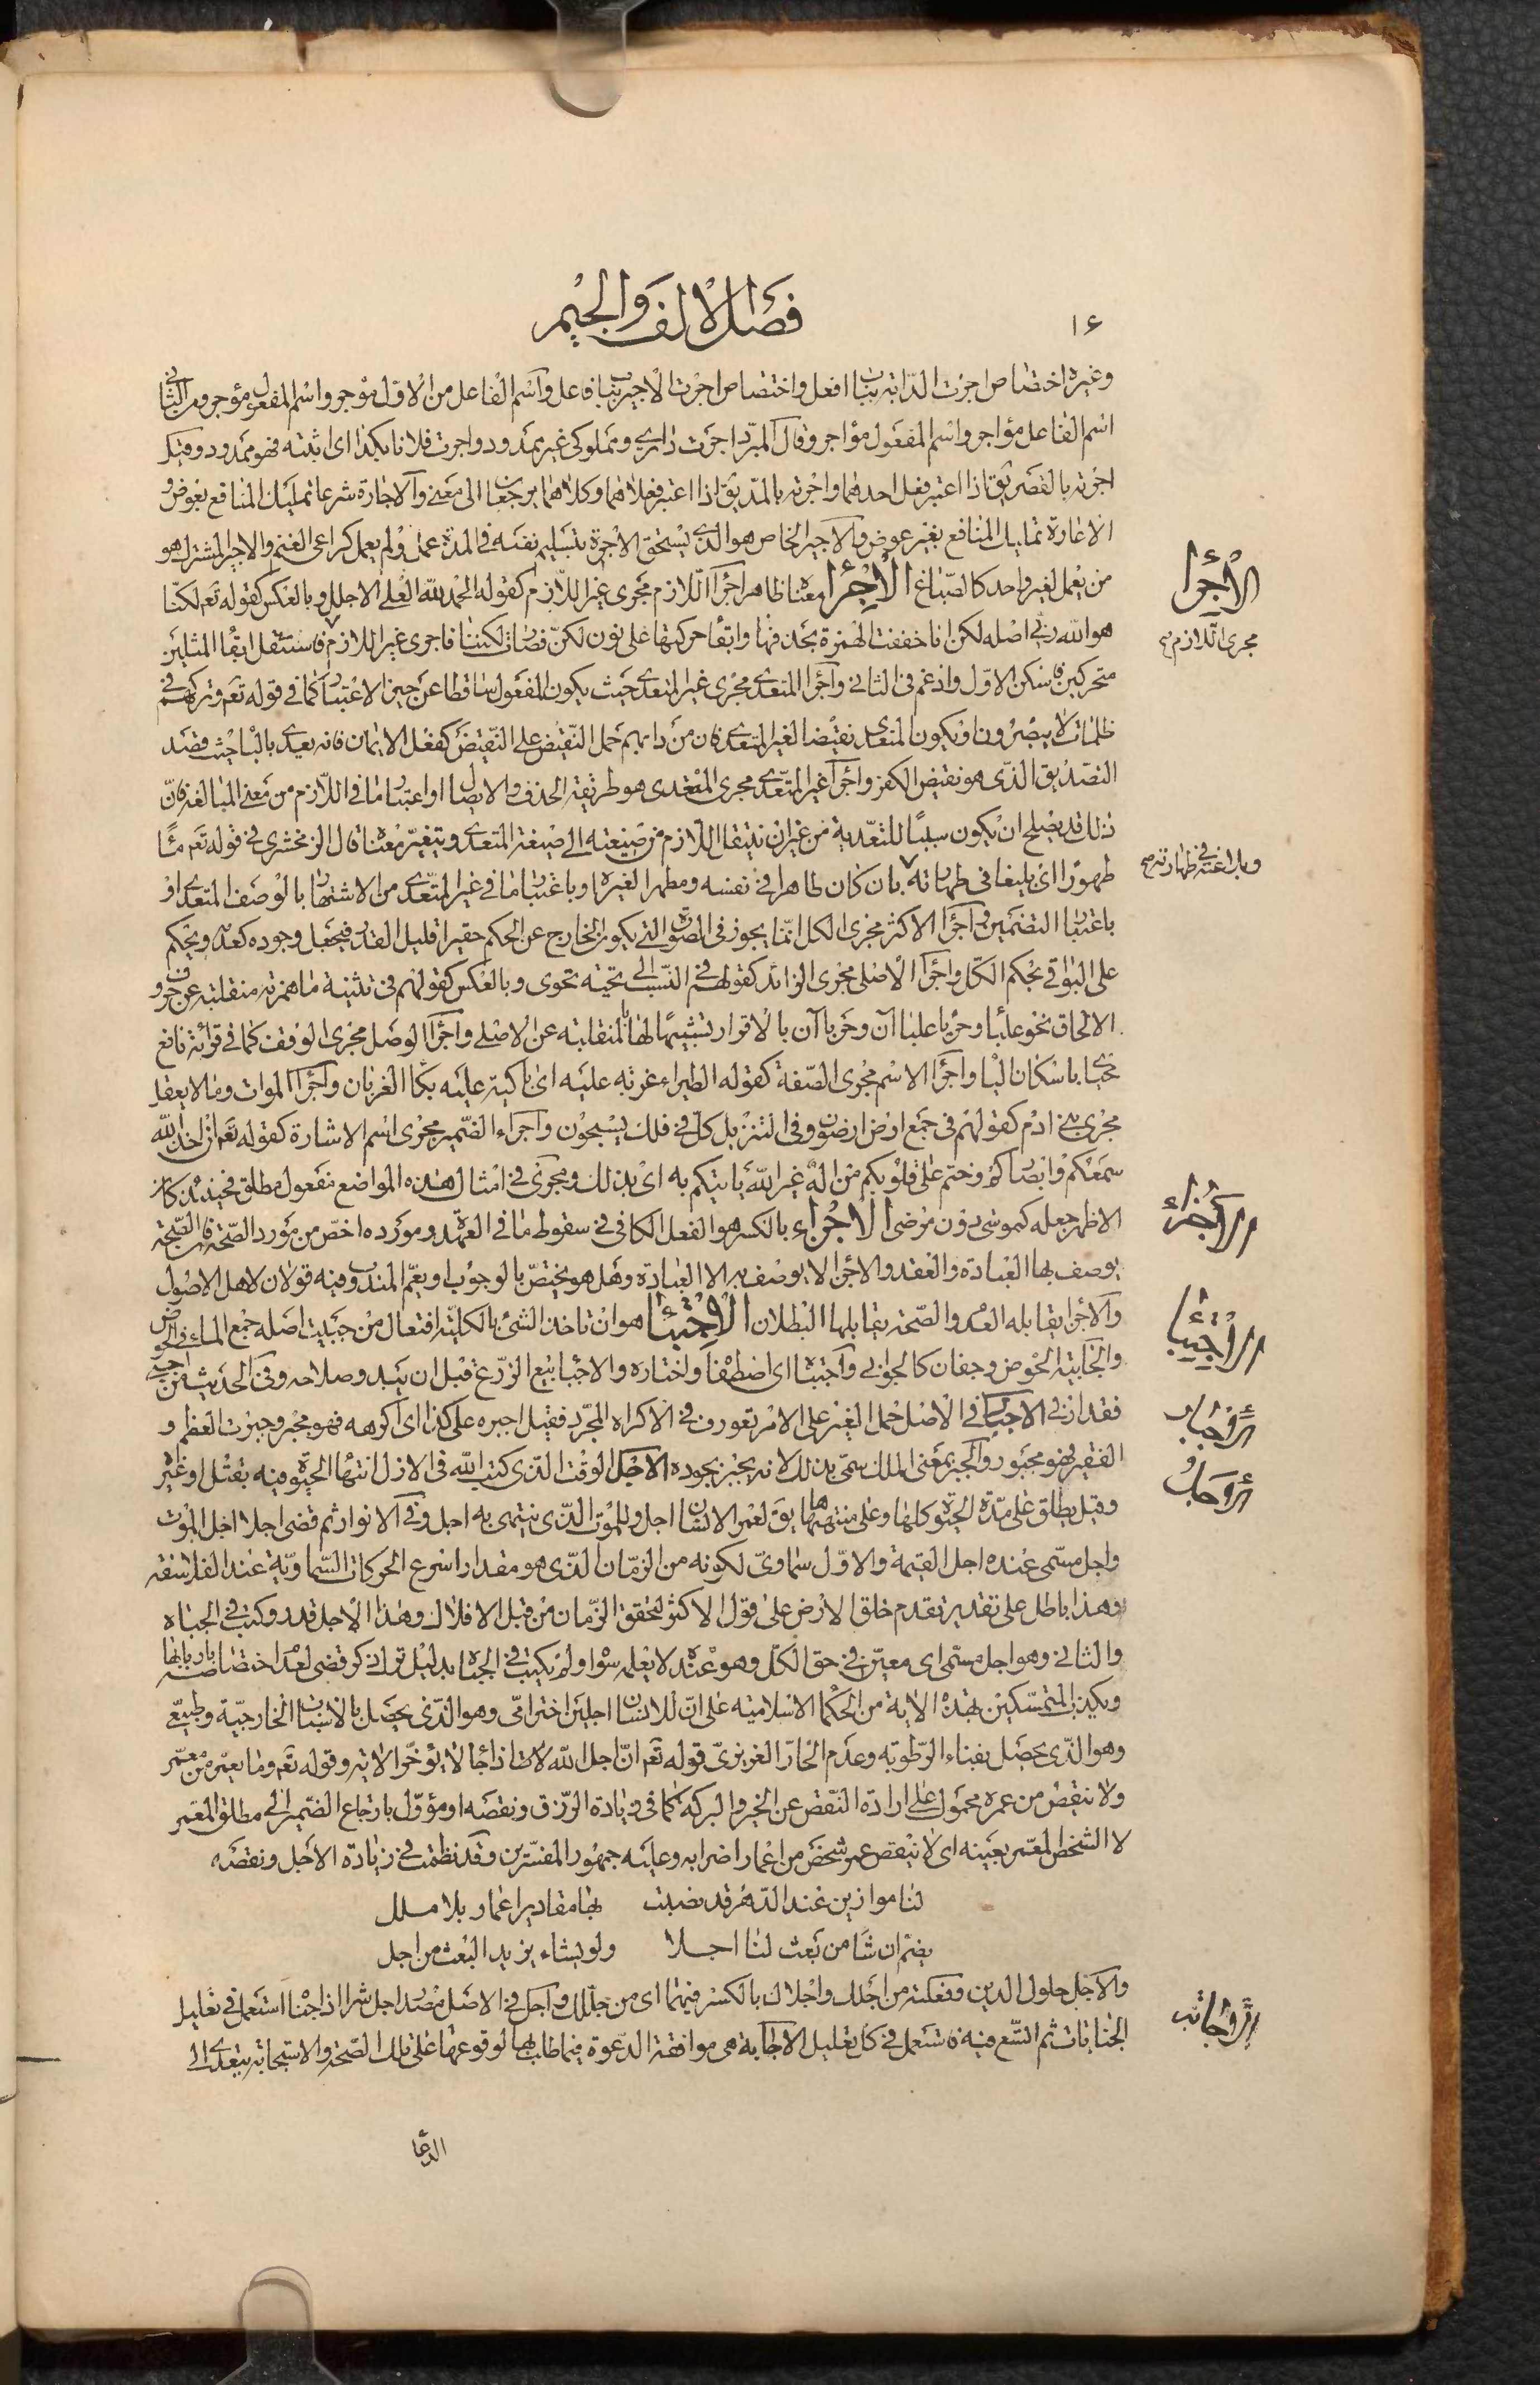 ١٤
فصل الالف والجيم
وغيره اختصاص اجرت الدابة بباب افعل واختصاص اجرت الاجير بباب فاعل واسم الفاعل من الاول موجر واسم المفعول مؤجر ومن الثاني
اسم الفاعل مؤاجر واسم المفعول مؤاجر وقال المبرد اجرت داري ومملوكي غير ممدود واجرت فلانا بكذا اى اثبته فهو ممدود وقيل
اجرته بالقصر يق اذا اعتبر فعل احدهما واجرته بالمد يق اذا اعتبر فعلاهما وكلاهما يرجعان الى معنى والاجارة شرعا تمليك المنافع بعوض و
الاعارة تمليك المنافع بغير عوض والاجير الخاص هو الذى يستحق الاجرة بتسليم نفسه فى المدة عمل او لم يعمل كراعى الغنم والاجير المشترك هو
من يعمل لغير واحد كالصباغ الاجراء معناه ظاهر اجراء اللازم مجرى غير اللازم كقوله الحمد لله العلى الاجلل وبالعكس كقوله تعم لكنا
هو الله ربى اصله لكن انا خففت الهمزة بحذفها والقاء حركتها على نون لكن فصارت لكننا فاجرى غير اللازم فاستثقل التقاء المثلين
متحركين فاسكن الاول وادغم فى الثانى واجراء المتعدى مجرى غير المتعدى حيث يكون المفعول ساقطا عن حيز الاعتبار كما فى قوله تعم وتركهم فى
ظلمات لا يبصرون او يكون المتعدى نقيضا لغير المتعدى فان من دابهم حمل النقيض على النقيض كفعل الايمان فانه يعدى بالباء حيث قصد
التصديق الذى هو نقيض الكفر واجراء غير المتعدى مجرى المتعدى هو طريقة الحذف والايصال او اعتبار ما فى اللازم من معنى المبالغة فان
ذلك قد يصلح ان يكون سببا للتعدية من غير ان ينتقل اللازم من صيغته الى صيغة المتعدى ويتغير معناه قال الزمخشرى فى قوله تعم ماء
طهورا اى بليغا فى طهارته بان كان طاهرا فى نفسه ومطهرا لغيره او باعتبار ما فى غير المتعدى من الاشتهار بالوصف المتعدى او
باعتبار التضمين واجراء الاكثر مجرى الكل انما يجوز فى الصورة التى يكون الخارج عن الحكم حقيرا قليل القدر فيجعل وجوده كعدمه ويحكم
على البواقى بحكم الكل واجراء الاصلى مجرى الزائد كقولهم فى النسب الى تحية تحوى وبالعكس كقولهم فى تثنية ما همزته منقلبة عن حرف
الالحاق نحو علباء وحرباء علباان وحرباان بالاقرار تشبيها لها بالمنقلبة عن الاصلى واجراء الوصل مجرى الوقف كما فى قرائة نافع
محياى باسكان الياء واجراء الاسم مجرى الصفة كقوله الطير اغربة عليه اى باكية عليه بكاء الغربان واجراء الموات وما لا يعقل
مجرى بنى ادم كقولهم فى جمع ارض ارضون وفى التنزيل كل فى فلك يسبحون واجراء الضمير مجرى اسم الاشارة كقوله تعم ان اخذ الله
سمعكم وابصاركم وختم على قلوبكم من اله غير الله ياتيكم به اى بذلك ومجرى فى امثال هذه المواضع مفعول مطلق فحينئذ كان
الاظهر جعله كموسى دون مرضى الاجزاء بالكسر هو الفعل الكافى فى سقوط ما فى العهدة ومورده اخص من مورد الصحة فان الصحة
يوصف بها العبادة والعقد والاجزاء لا يوصف به الا العبادة وهل هو يختص بالوجوب او يعم المندوب فيه قولان لاهل الاصول
والاجزاء يقابله العدم والصحة يقابلها البطلان الاجتباء هو ان تاخذ الشئ بالكلية افتعال من جبيت اصله جمع الماء فى الحوض
والجابية الحوض وجفان كالجوابى واجتباه اى اصطفاه واختاره والاجباء بيع الزرع قبل ان يبدو صلاحه وفى الحديث من اجبى
فقد اربى الاجبار فى الاصل حمل الغير على الامر تعورف فى الاكراه المجرد فقيل اجبره على كذا اى اكرهه فهو مجبر وجبرت العظم و
الفقير فهو مجبور والجبر بمعنى الملك سمى بذلك لانه يجبر بجوده الاجل الوقت الذى كتب الله فى الازل انتهاء الحيوة فيه بقتل او غيره
وقيل يطلق على مدة الحيوة كلها وعلى منتهاها يق لعمر الانسان اجل وللموت الذى ينتهى به اجل وفى الانوار ثم قضى اجلا اجل الموت
واجل مسمى عنده اجل القيمة والاول سماوى لكونه من الزمان الذى هو مقدار اسرع الحركات السماوية عند الفلاسفة
وهذا باطل على تقدير تقدم خلق الارض على قول الاكثر لتحقق الزمان من قبل الافلاك وهذا الاجل قدر وكتب فى الجباه
والثانى وهو اجل مسمى اى معين فى حق الكل وهو عنده لا يعلمه سواه ولم يكتب فى الجباه بدليل تراى ذكر قضى لعدم اختصاصه بارباها
ويكذب المتمسكين بهذه الاية من الحكماء الاسلامية على ان للانسان اجلين اخترامى وهو الذى يحصل بالاسباب الخارجية وطبيعى
وهو الذى يحصل بفناء الرطوبة وعدم الحار الغريزى قوله تعم ان اجل الله اذا جاء لا يؤخر الاية وقوله تعم وما يعمر من معمر
ولا ينقص من عمره محمول على ارادة النقص عن الخير والبركة كما فى زيادة الرزق ونقصه او مؤول بارجاع الضمير الى مطلق المعمر
لا الشخص المعمر بعينه اى لا ينقص عمر شخص من اعمار اضرابه وعليه جمهور المفسرين وقد نظمت فى زيادة الاجل ونقصه
لنا موازين عند الدهر قد نصبت بها مقادير اعمار بلا ملل
يضم ان شا من بعث لنا اجلا ولو يشاء يزيد البعث من اجل
والاجل حلول الدين وفعلته من اجلك واجلاك بالكسر فيهما اى من جللك واجل فى الاصل مصدر اجل شرا اذا جناه استعمل فى تعليل
الجنايات ثم اتسع فيه فاستعمل فى كل تعليل الاجابة هى موافقة الدعوة فيما طلب بها لوقوعها على تلك الصحة والاستجابة يتعدى الى
الدعا
الاجرا
مجرى اللازم صح
وبلاغته فى طهارته صح
الاجزاء
الاجتبا
الاجبار
الاجل
الاجابة